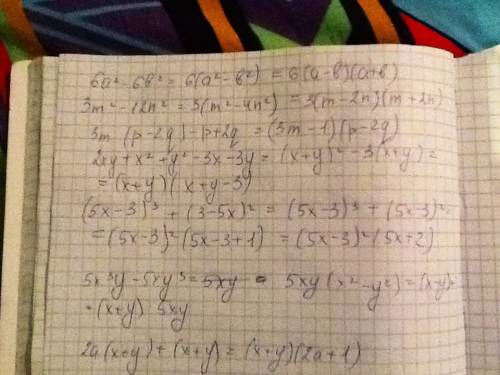 6a² - 6b² = 6(a² - b²) = 6(a-b)(a+b)
3m² - 12n² = 3(m² - 4n²) = 3(m-2n)(m+2n)
3m (p-2q) - p+2q = (3m-1)(p-2q)
2xy + x² + y² - 3x - 3y = (x+y)² - 3(x+y) =
= (x+y)(x+y-3)
(5x-3)³ + (3-5x)² = (5x-3)³ + (5x-3)² =
= (5x-3)² (5x-3+1) = (5x-3)² (5x+2)
5x³y - 5xy³ = 5xy = 5xy (x² - y²) = (x-y)·
· (x+y) 5xy
2a (x+y) + (x+y) = (x+y)(2a+1)